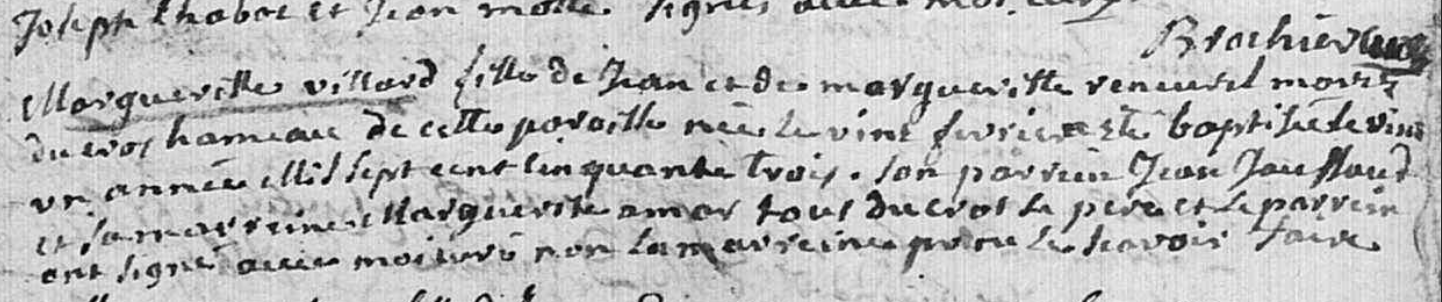 Joseph Chabot et Jean motte. signés avec moi curé
Brochier curé
Margueritte villard fille de Jean et de margueritte reneuvel mariés
du cros hameau de cette paroisse née le vint fevrier a eté baptisée le vint
un année Mil sept cent cinquante trois. son parrein Jean Jauffaud
et sa marreine Marguerite amar tous du cros le pere et le parrein
ont signé avec moi curé non la marreine pour ne sçavoir faire